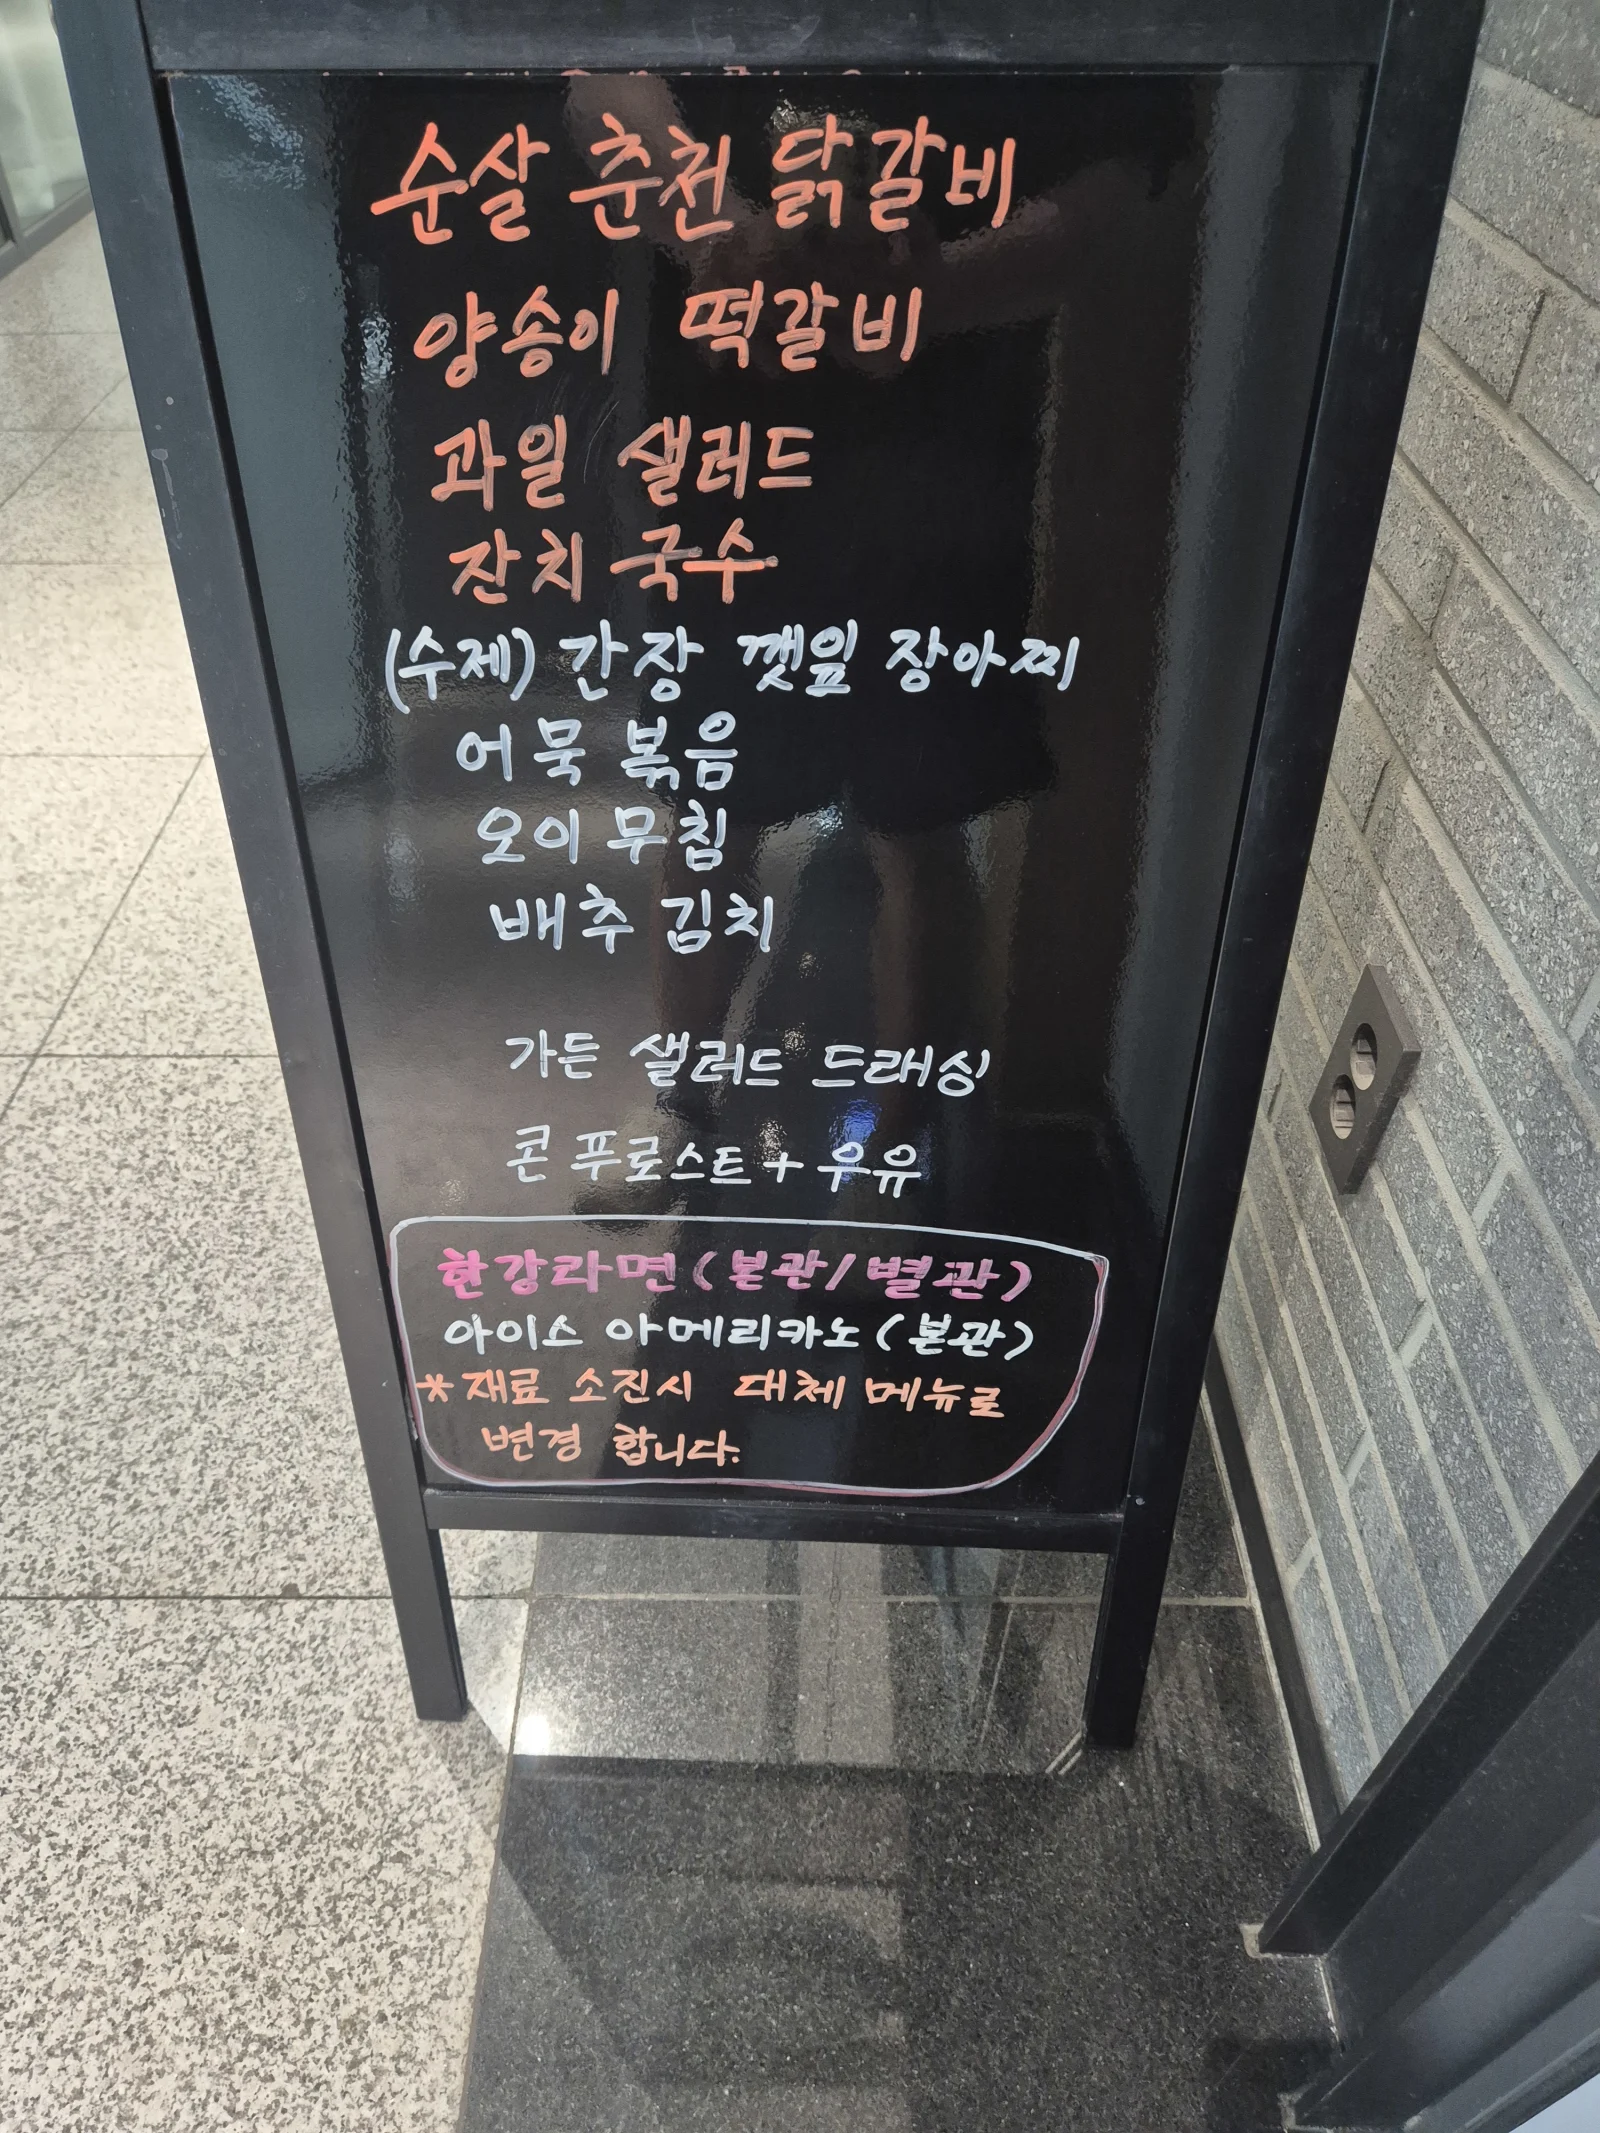 순살 춘천 닭갈비
양송이 떡갈비
과일 샐러드
잔치 국수
(수제) 간장 깻잎 장아찌
어묵 볶음
오이 무침
배추 김치
가든 샐러드 드래싱
콘 푸로스트 + 우유
한강라면 (본관/별관)
아이스 아메리카노 (본관)
*재료 소진시 대체 메뉴로
변경 합니다.